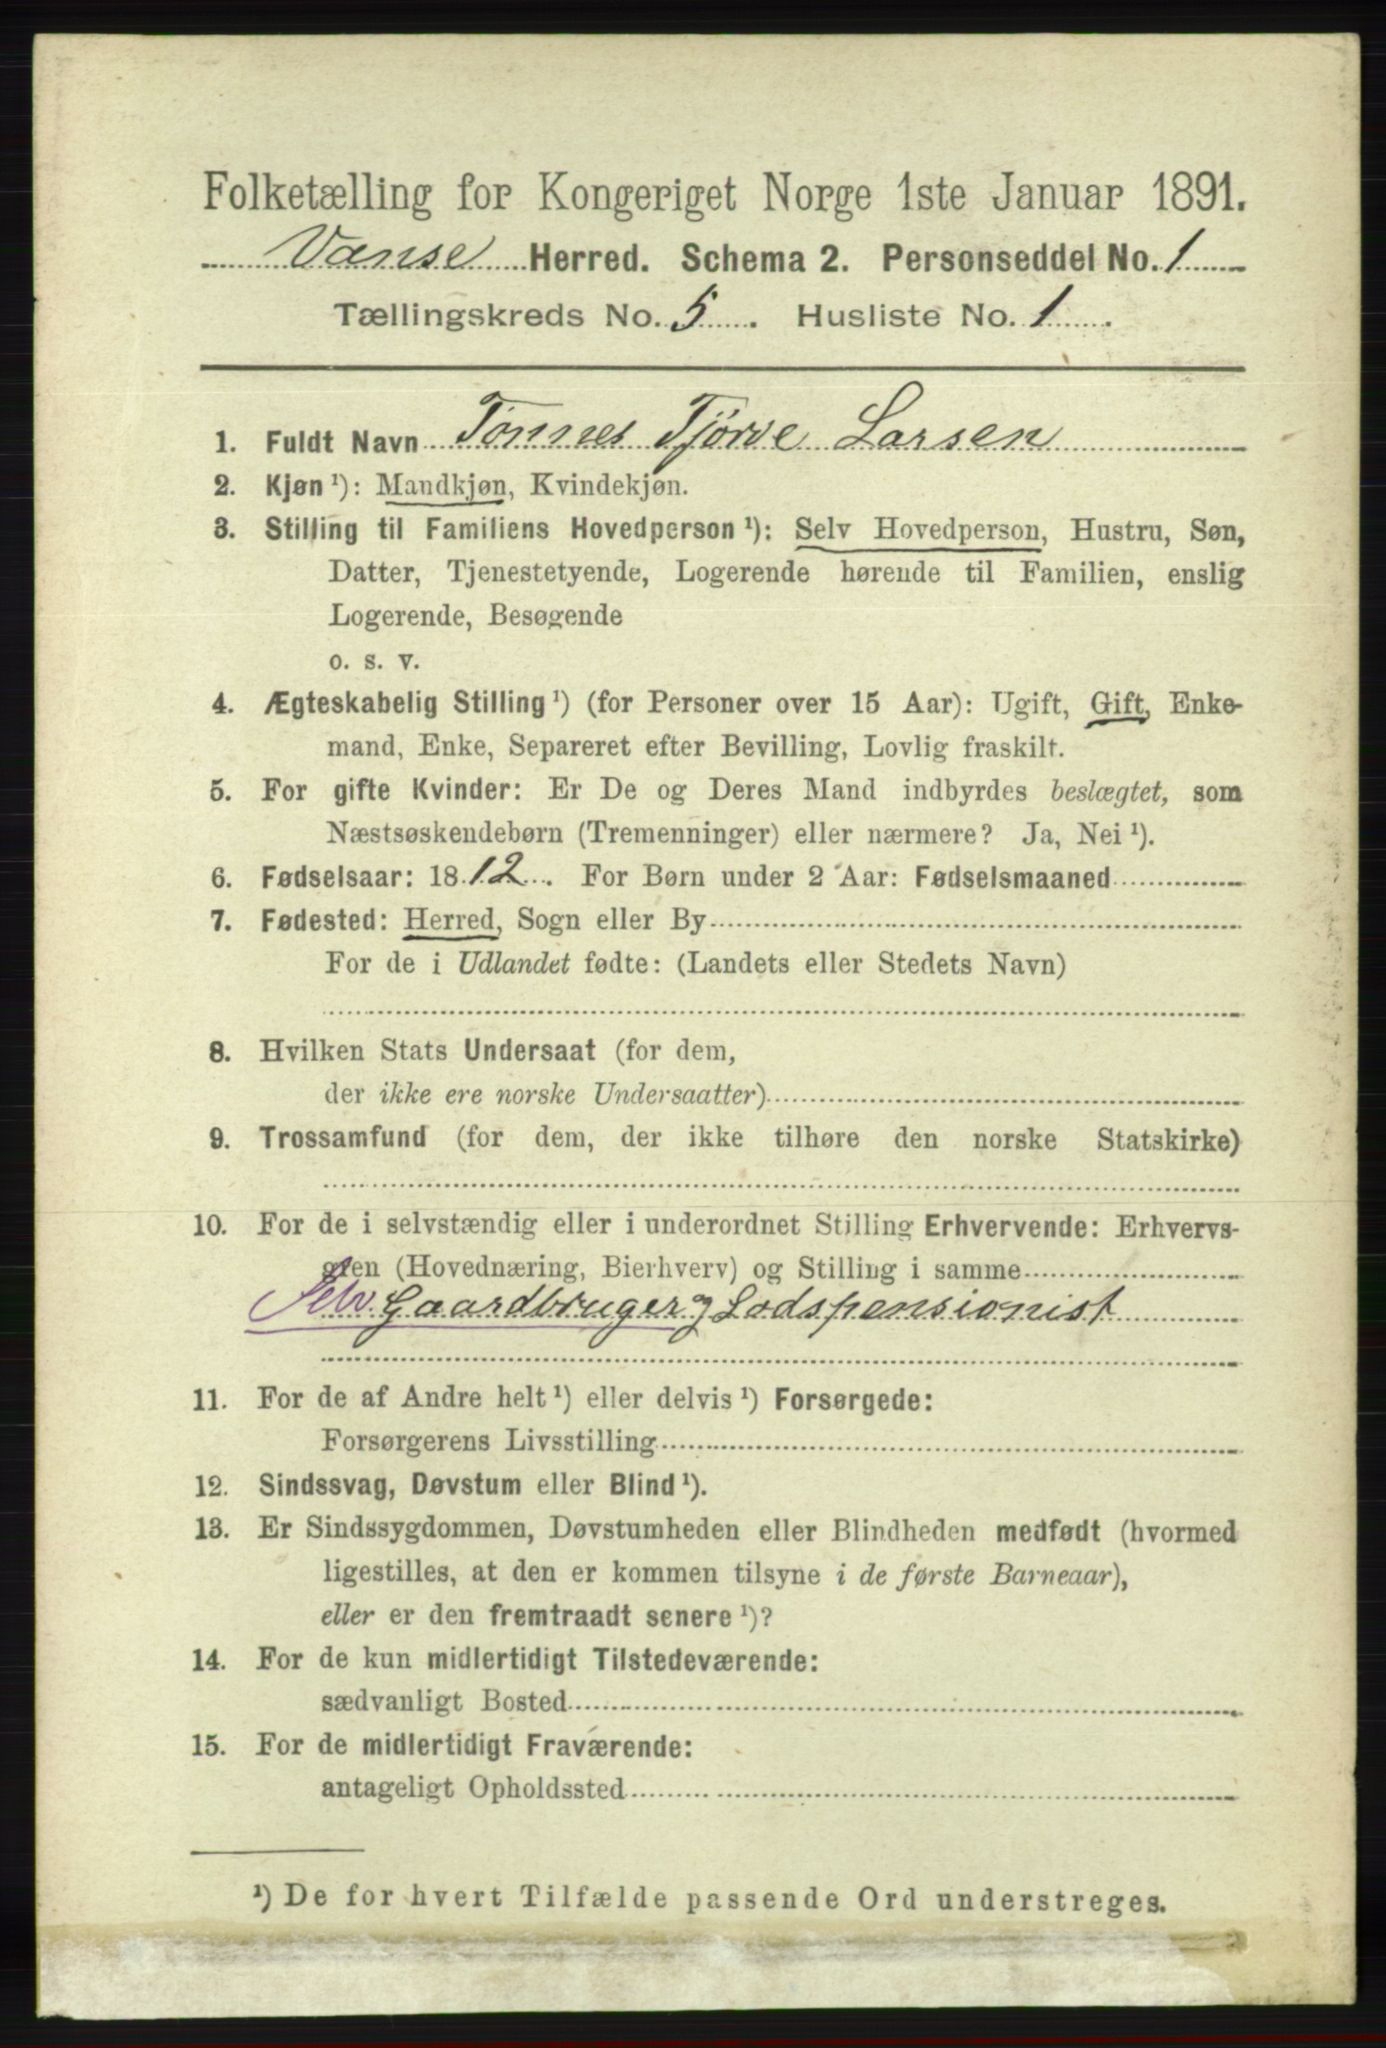 Folketælling for Kongeriget Norge 1ste Januar 1891.
Vanse Herred. Schema 2. Personseddel No. 1
Tællingskreds No. 5. Husliste No. 1.
1. Fuldt Navn Tønnes Tjørve Larsen
2. Kjøn ¹): Mandkjøn, Kvindekjøn.
3. Stilling til Familiens Hovedperson ¹): Selv Hovedperson, Hustru, Søn,
Datter, Tjenestetyende, Logerende hørende til Familien, enslig
Logerende, Besøgende
o. s. v.
4. Ægteskabelig Stilling ¹) (for Personer over 15 Aar): Ugift, Gift, Enke-
mand, Enke, Separeret efter Bevilling, Lovlig fraskilt.
5. For gifte Kvinder: Er De og Deres Mand indbyrdes beslægtet, som
Næstsøskendebørn (Tremenninger) eller nærmere? Ja, Nei ¹).
6. Fødselsaar: 1812. For Børn under 2 Aar: Fødselsmaaned
7. Fødested: Herred, Sogn eller By
For de i Udlandet fødte: (Landets eller Stedets Navn)
8. Hvilken Stats Undersaat (for dem,
der ikke ere norske Undersaatter)
9. Trossamfund (for dem, der ikke tilhøre den norske Statskirke)
10. For de i selvstændig eller i underordnet Stilling Erhvervende: Erhvervs-
gren (Hovednæring, Bierhverv) og Stilling i samme
Selv. Gaardbruger og Lodspensionist
11. For de af Andre helt ¹) eller delvis ¹) Forsørgede:
Forsørgerens Livsstilling
12. Sindssvag, Døvstum eller Blind ¹).
13. Er Sindssygdommen, Døvstumheden eller Blindheden medfødt (hvormed
ligestilles, at den er kommen tilsyne i de første Barneaar),
eller er den fremtraadt senere ¹)?
14. For de kun midlertidigt Tilstedeværende:
sædvanligt Bosted
15. For de midlertidigt Fraværende:
antageligt Opholdssted
¹) De for hvert Tilfælde passende Ord understreges.